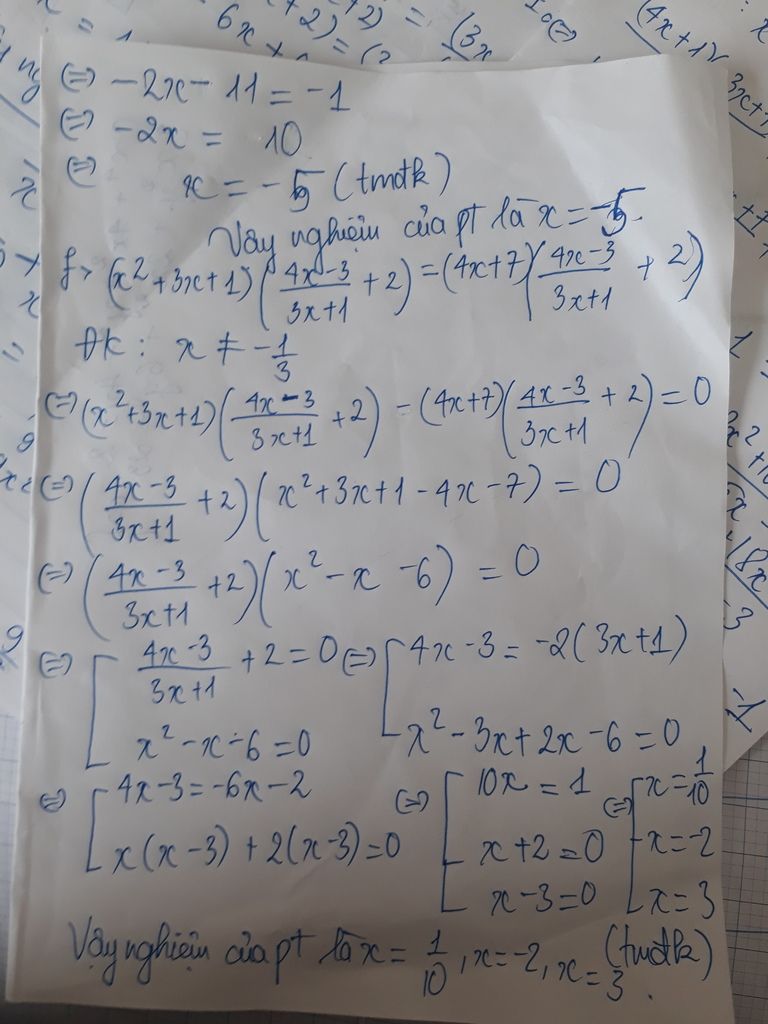 ⇔ -2x - 11 = -1
⇔ -2x = 10
⇔ x = -5 (tmđk)
Vậy nghiệm của pt là x = -5.
f> (x² + 3x + 1)((4x-3)/(3x+1) + 2) = (4x+7)((4x-3)/(3x+1) + 2)
ĐK: x ≠ -1/3
⇔ (x² + 3x + 1)((4x-3)/(3x+1) + 2) - (4x+7)((4x-3)/(3x+1) + 2) = 0
⇔ ((4x-3)/(3x+1) + 2)(x² + 3x + 1 - 4x - 7) = 0
⇔ ((4x-3)/(3x+1) + 2)(x² - x - 6) = 0
⇔ [ (4x-3)/(3x+1) + 2 = 0 ⇔ [ 4x - 3 = -2(3x+1)
x² - x - 6 = 0 x² - 3x + 2x - 6 = 0
⇔ [ 4x - 3 = -6x - 2 ⇔ [ 10x = 1 ⇔ [ x = 1/10
x(x-3) + 2(x-3) = 0 x + 2 = 0 x = -2
x - 3 = 0 x = 3
(tmđk)
Vậy nghiệm của pt là x = 1/10, x = -2, x = 3.